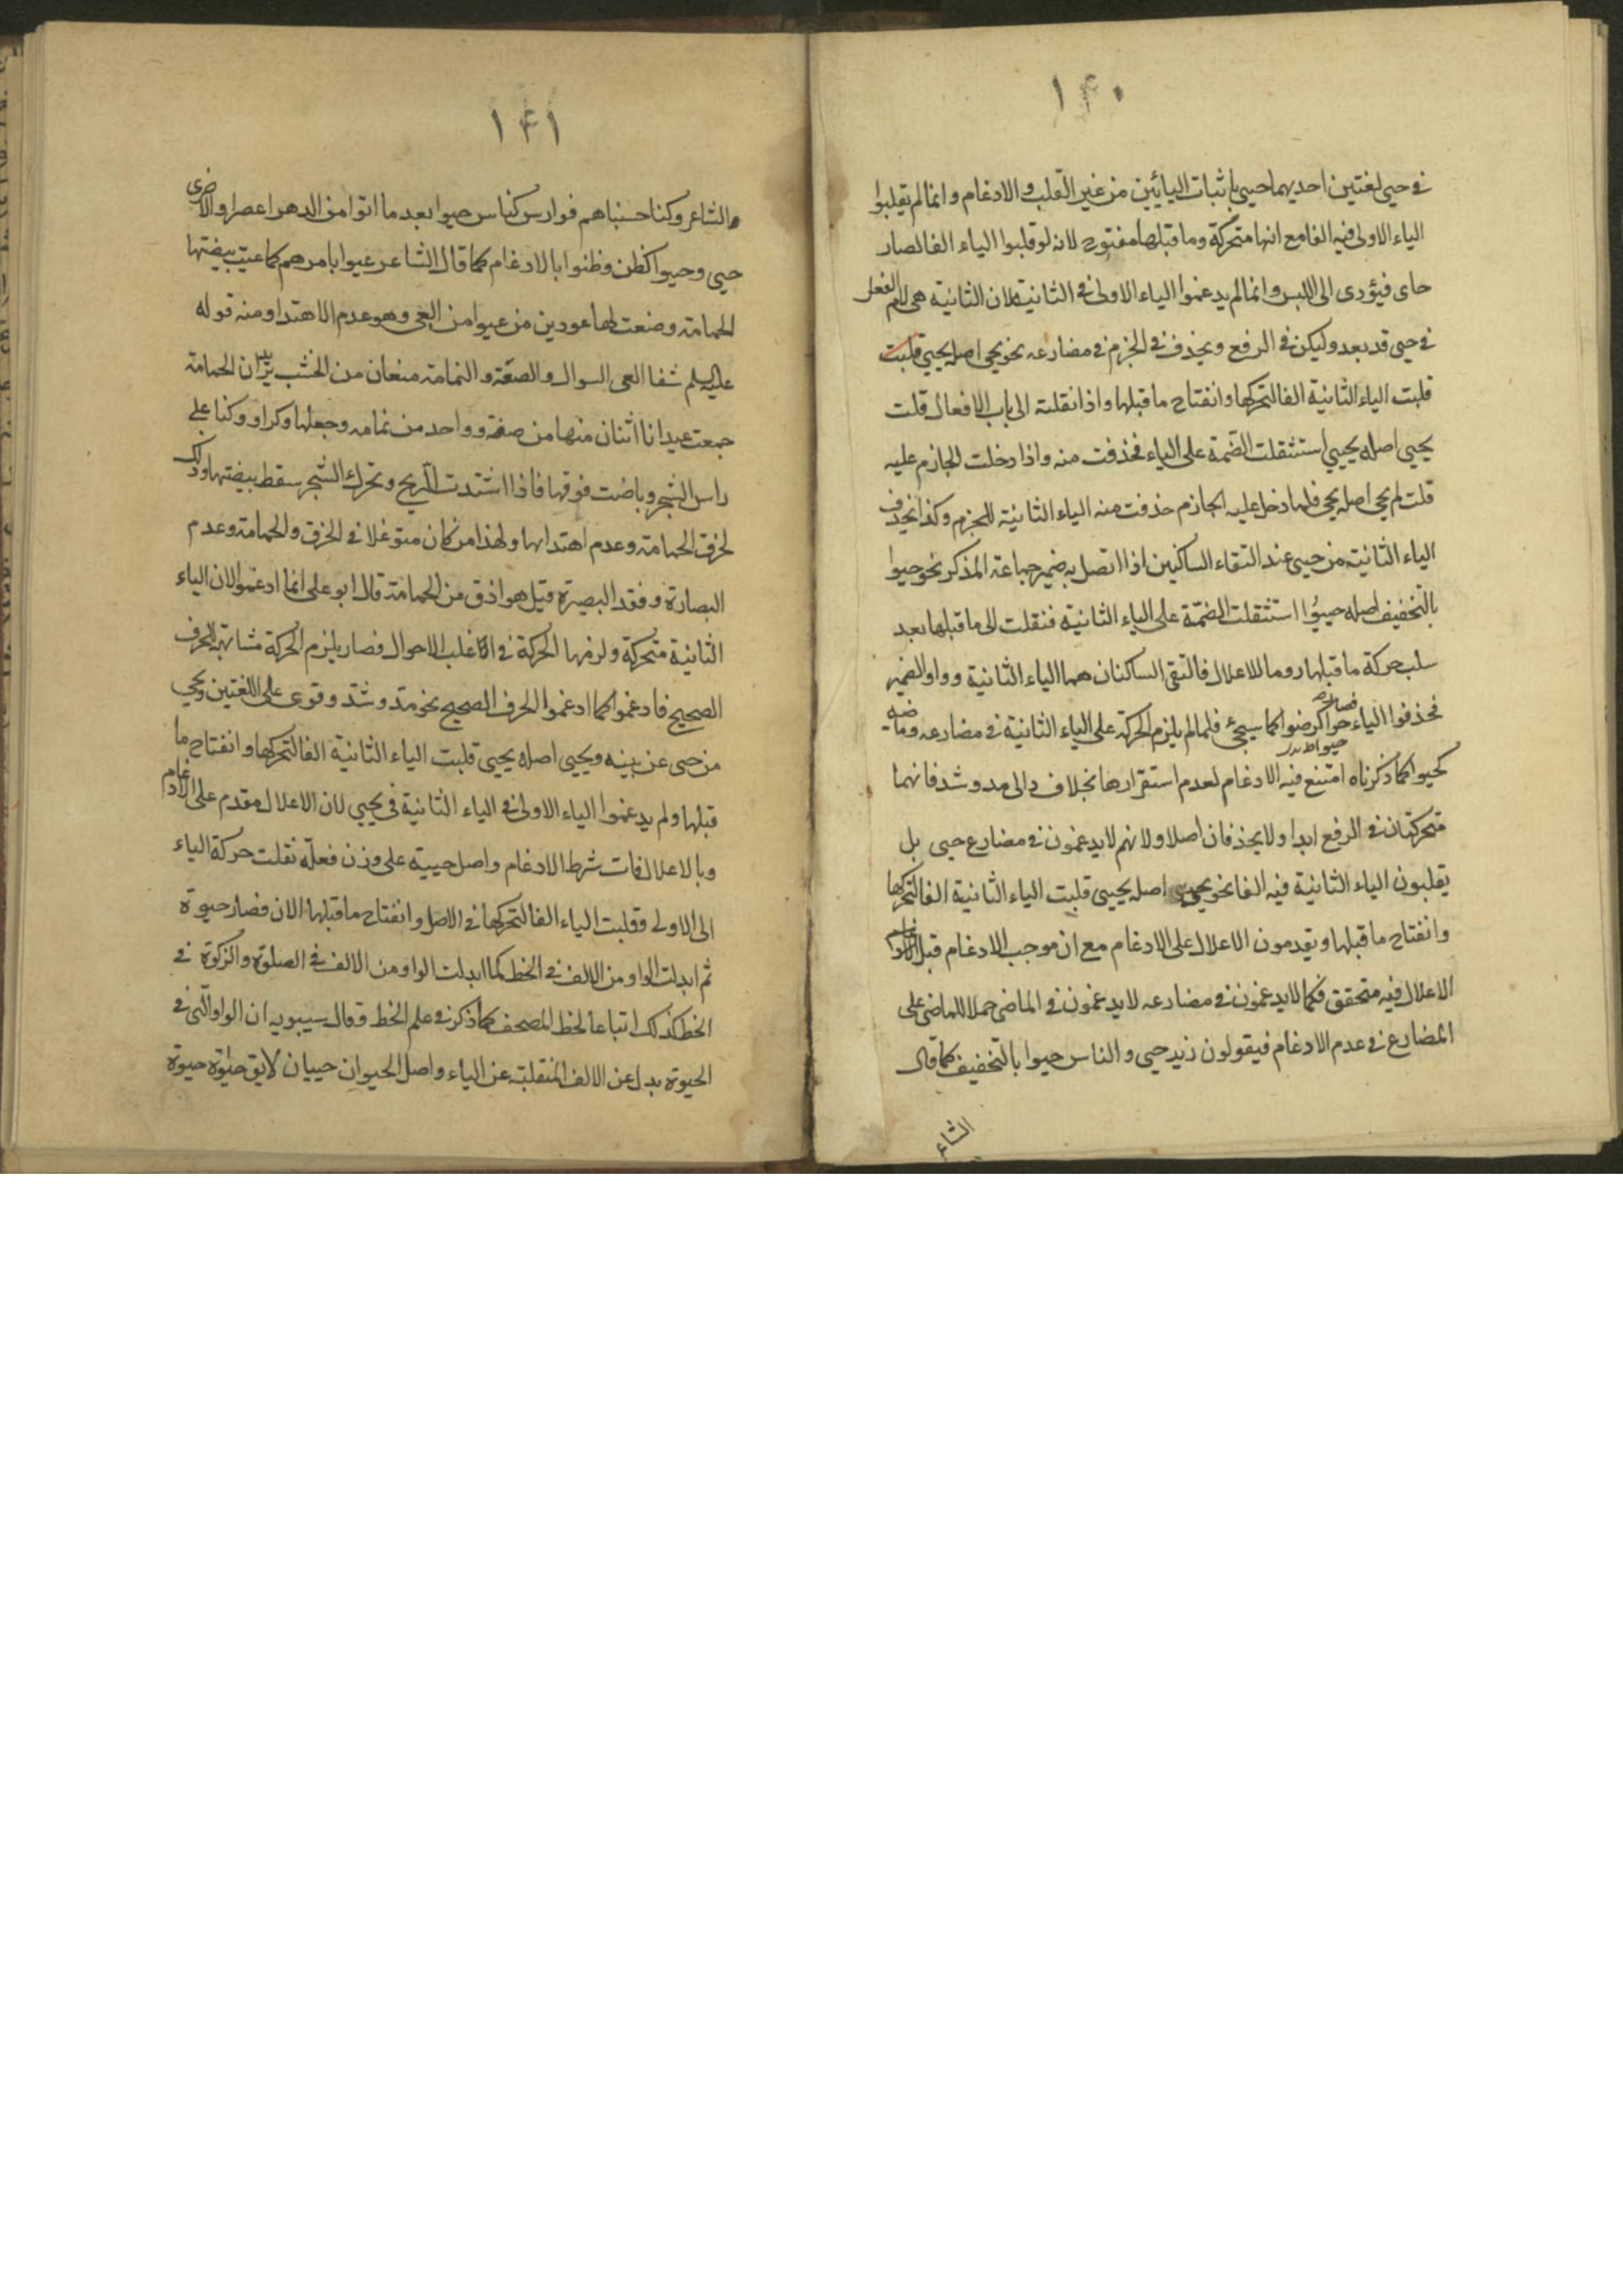 ١٤٠
في حيي لغتين احديهما حيي باثبات اليائين من غير القلب والادغام وانما لم يقلبوا
الياء الاولى فيه الفا مع انها متحركة وما قبلها مفتوح لانه لو قلبوا الياء الفا لصار
حاى فيؤدى الى اللبس وانما لم يدغموا الياء الاولى في الثانية لان الثانية هى لام الفعل
في حيى قد يعد وليكن في الرفع ويحذف في الجزم في مضارعه نحو يحي اصله يحيي قلبت
قلبت الياء الثانية الفا لتحركها وانفتاح ما قبلها واذا نقلته الى باب الافعال قلت
يحيى اصله يحيي استثقلت الضمة على الياء فحذفت منه واذا دخلت الجازم عليه
قلت لم يحي اصله يحي فلما دخل عليه الجازم حذفت منه الياء الثانية للجزم وكذا يحذف
الياء الثانية من حيى عند التقاء الساكنين اذا اتصل به ضمير جماعة المذكر نحو حيوا
بالتخفيف اصله حييوا استثقلت الضمة على الياء الثانية فنقلت الى ما قبلها بعد
سلب حركة ما قبلها روما للاعلال فالتقى الساكنان هما الياء الثانية وواو الضمير
فحذفوا الياء فصار حيوا كرضوا كما سيجئ فلما لم يلزم الحركة على الياء الثانية في مضارعه وماضيه
كحيوا كما ذكرناه امتنع فيه الادغام لعدم استقرارها بخلاف دالى مد وشد فانهما
متحركتان في الرفع ابدا ولا يحذفان اصلا ولانهم لا يدغمون في مضارع حيى بل
يقلبون الياء الثانية فيه الفا نحو يحيى اصله يحيى قلبت الياء الثانية الفا لتحركها
وانفتاح ما قبلها ويقدمون الاعلال على الادغام مع ان موجب الادغام قبل
الاعلال فيه متحقق فكما لا يدغمون في مضارعه لا يدغمون في الماضى حملا للماضى على
المضارع في عدم الادغام فيقولون زيد حيى والناس حيوا بالتخفيف كما قال
الشاع
١٤١
الشاعر وكنا حسبناهم فوارس كناس حيوا بعد ما اتوا من الدهر اعصرا والاخرى
حيى وحيوا كظن وظنوا بالادغام كما قال الشاعر عيوا بامرهم كما عيت ببيضتها
الحمامة وضعت لها عودين من عيوا من العى وهو عدم الاهتداء ومنه قوله
عليه السلم شفا العى السوال والصفة والنمامة منعان من الخشب ان الحمامة
جمعت عيدانا اثنان منها من صفة وواحد من نمامه وجعلها وكنا على
راس الشجر وباضت فوقها فاذا اشتدت الريح وتحرك الشجر سقط بيضتها وذلك
لخرق الحمامة وعدم اهتدائها ولهذا من كان متوغلا في الخرق والحمامة وعدم
البصارة وفقد البصيرة قيل هو اخرق من الحمامة قال ابو على انما ادغموا لان الياء
الثانية متحركة ولزمها الحركة في اغلب الاحوال فصار يلزم الحركة مشابهة للحرف
الصحيح فادغموا كما ادغموا الحرف الصحيح نحو مد وشد وقوى على اللغتين ويحي
من حى عن بينه ويحيى اصله يحيى قلبت الياء الثانية الفا لتحركها وانفتاح ما
قبلها ولم يدغموا الياء الاولى في الياء الثانية في يحيي لان الاعلال مقدم على الادغام
وبالاعلال فات شرط الادغام واصل حيية على وزن فعلة نقلت حركة الياء
الى الاولى وقلبت الياء الفا لتحركها في الاصل وانفتاح ما قبلها الان فصار حيوة
ثم ابدلت الواو من الالف في الخط كما ابدلت الواو من الالف في الصلوة والزكوة في
الخط كذلك اتباعا لخط المصحف كما ذكر في علم الخط وقال سيبويه ان الواو التى في
الحيوة بدل عن الالف المنقلبة عن الياء واصل الحيوان حييان لا يق حيوة